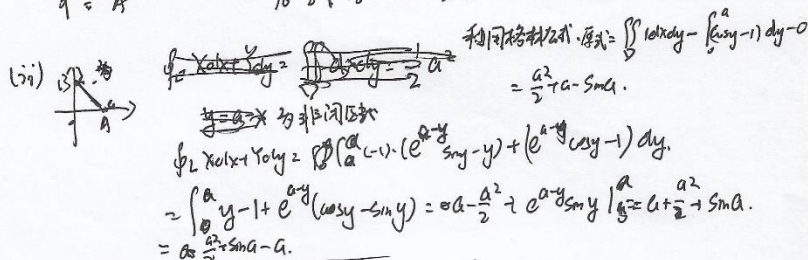 利用格林公式.原式=∬_D 1dxdy-∫_0^a(cosy-1)dy-0
=a²/2+a-sina.
(ii) B A
∮_L Xdx+Ydy=∬_D dxdy=1/2 a²
y=a-x 为非闭区域
∮_L Xdx+Ydy=∫_0^a(-1)·(e^{a-y}siny-y)+(e^{a-y}cosy-1)dy.
=∫_0^a y-1+e^{a-y}(cosy-siny)=a-a²/2+e^{a-y}siny|_0^a=a+a²/2+sina.
=a²/2+sina-a.